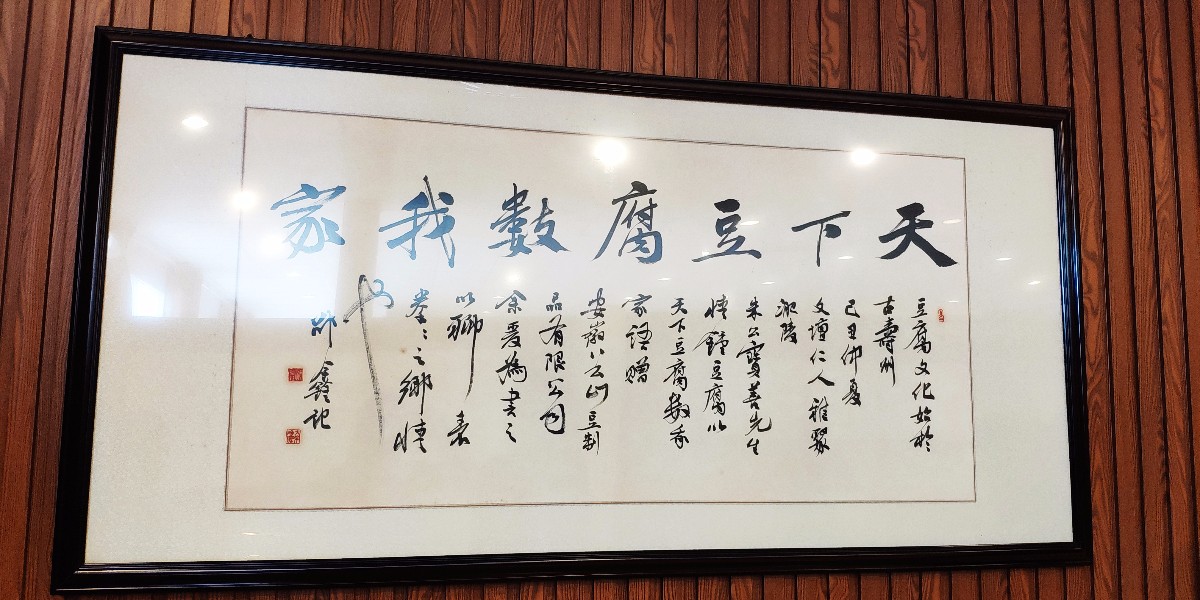 天下豆腐數我家
豆腐文化始於
古壽州
己丑仲夏
文壇仁人雅聚
淝陵
朱公善先生
情鐘豆腐以
天下豆腐數吾
家語贈
安徽八公山豆制
品有限公司
余爰為書之
以聊表
拳拳之鄉情
也
記